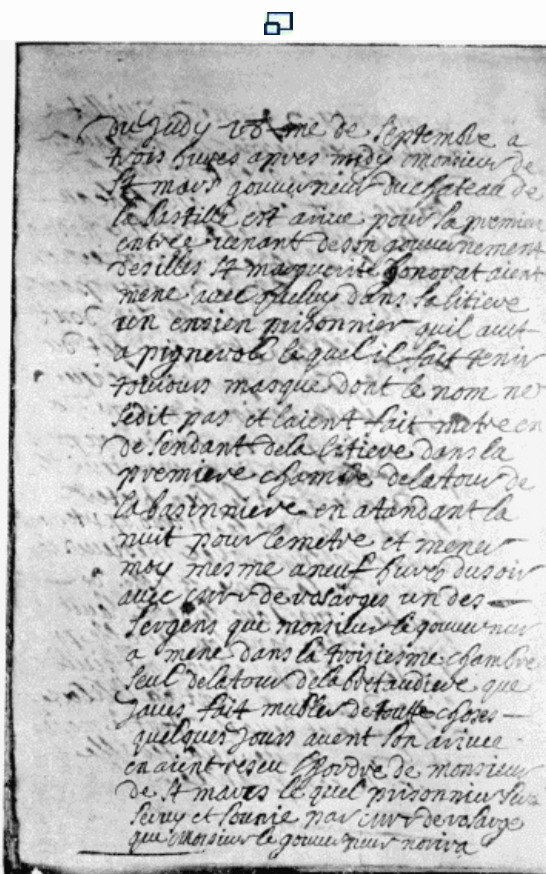 du judy 18me de septembre a
trois hures apres midy monsieur de
St mars gouuerneur du chateau de
la bastille est ariue pour la premier
entree venant de son gouuernement
des illes St marguerite honorat aient
mene auec queluy dans sa litiere
un ensien prisonnier quil auet
a pignerol lequel il fait tenir
touiours masque dont le nom ne
se dit pas et laient fait metre en
de sendant de la litiere dans la
premiere chambre de la tour de
la basinniere en atandant la
nuit pour le metre et mener
moy mesme a neuf hures du soir
auec de rosarges un des
sergens que monsieur le gouuerneur
a mene dans la troisiesme chambre
seul de la tour de la bretaudiere que
jaues fait mubler de toutte choses
quelques jours auent son ariuee
en aient reseu lhordre de monsieur
de St mars le quel prisonnier sera
seruy et sounie par de rosarge
que monsieur le gouuerneur norira